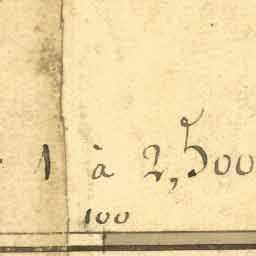 1 à 2,500
100